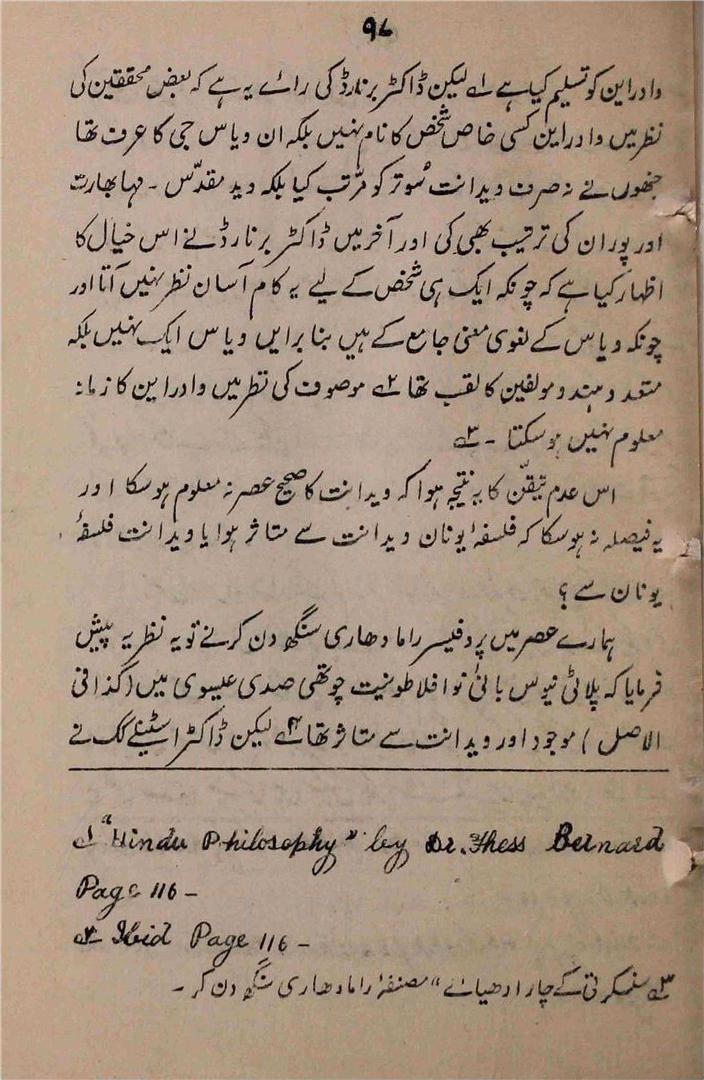 ۹۷
وادراین کو تسلیم کیا ہے ۱؎ لیکن ڈاکٹر برنارڈ کی رائے یہ ہے کہ بعض محققین کی
نظر میں وادراین کسی خاص شخص کا نام نہیں بلکہ ان ویاس جی کا عرف تھا
جنھوں نے نہ صرف ویدانت سُوتر کو مرتّب کیا بلکہ وید مقدّس ۔ مہابھارت
اور پوران کی ترتیب بھی کی اور آخر میں ڈاکٹر برنارڈ نے اس خیال کا
اظہار کیا ہے کہ چونکہ ایک ہی شخص کے لیے یہ کام آسان نظر نہیں آتا اور
چونکہ ویاس کے لغوی معنی جامع کے ہیں بنا برایں ویاس ایک نہیں بلکہ
متعدد ہندو مولفین کا لقب تھا ۲؎ موصوف کی نظر میں وادراین کا زمانہ
معلوم نہیں ہو سکتا ۔ ۳؎
اس عدم تیقّن کا یہ نتیجہ ہوا کہ ویدانت کا صحیح عصر نہ معلوم ہو سکا اور
یہ فیصلہ نہ ہو سکا کہ فلسفۂ یونان ویدانت سے متاثر ہوا یا ویدانت فلسفۂ
یونان سے ؟
ہمارے عصر میں پروفیسر راما دھاری سنگھ دن کر نے تو یہ نظریہ پیش
فرمایا کہ پلاٹی نیوس بانیٔ نو افلاطونیت چوتھی صدی عیسوی میں (کذا فی
الاصل ) موجود اور ویدانت سے متاثر تھا ۴؎ لیکن ڈاکٹر اسٹینلے لک نے
۱؎ "Hindu Philosophy" by Dr. Thess Bernard
Page 116 –
۲؎ Ibid Page 116 –
۳؎ سنسکرتی کے چار ادھیائے " مصنفۂ راما دھاری سنگھ دن کر ۔